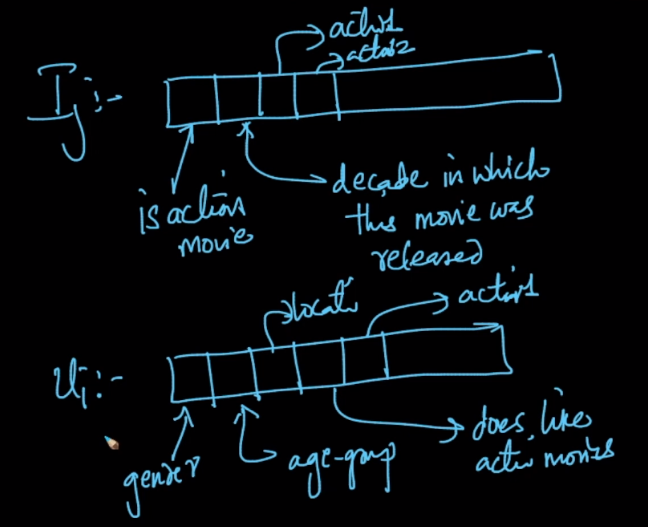 actor1
actor2
Ij :-
is action
movie
decade in which
this movie was
released
locati
actor1
Ui :-
gender
age-group
does like
action movies